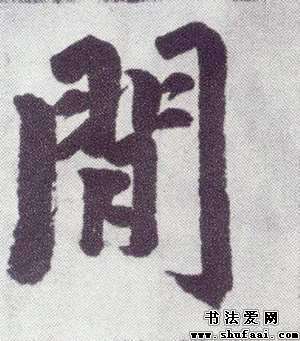 間
书法爱网
www.shufaai.com